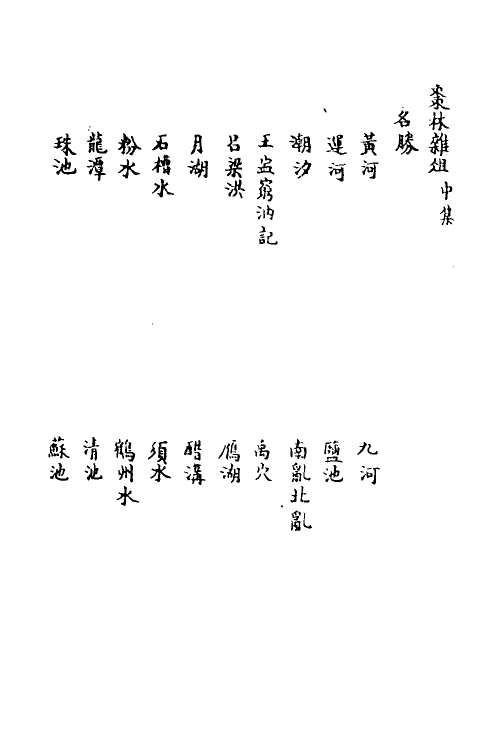 棗林雜俎 中集
名勝
黃河 九河
運河 鹽池
潮汐 南亂北亂
王岦窮汭記 禹穴
呂梁洪 鴈湖
月湖 醋溝
石槽水 須水
粉水 鶴州水
龍潭 清池
珠池 蘇池